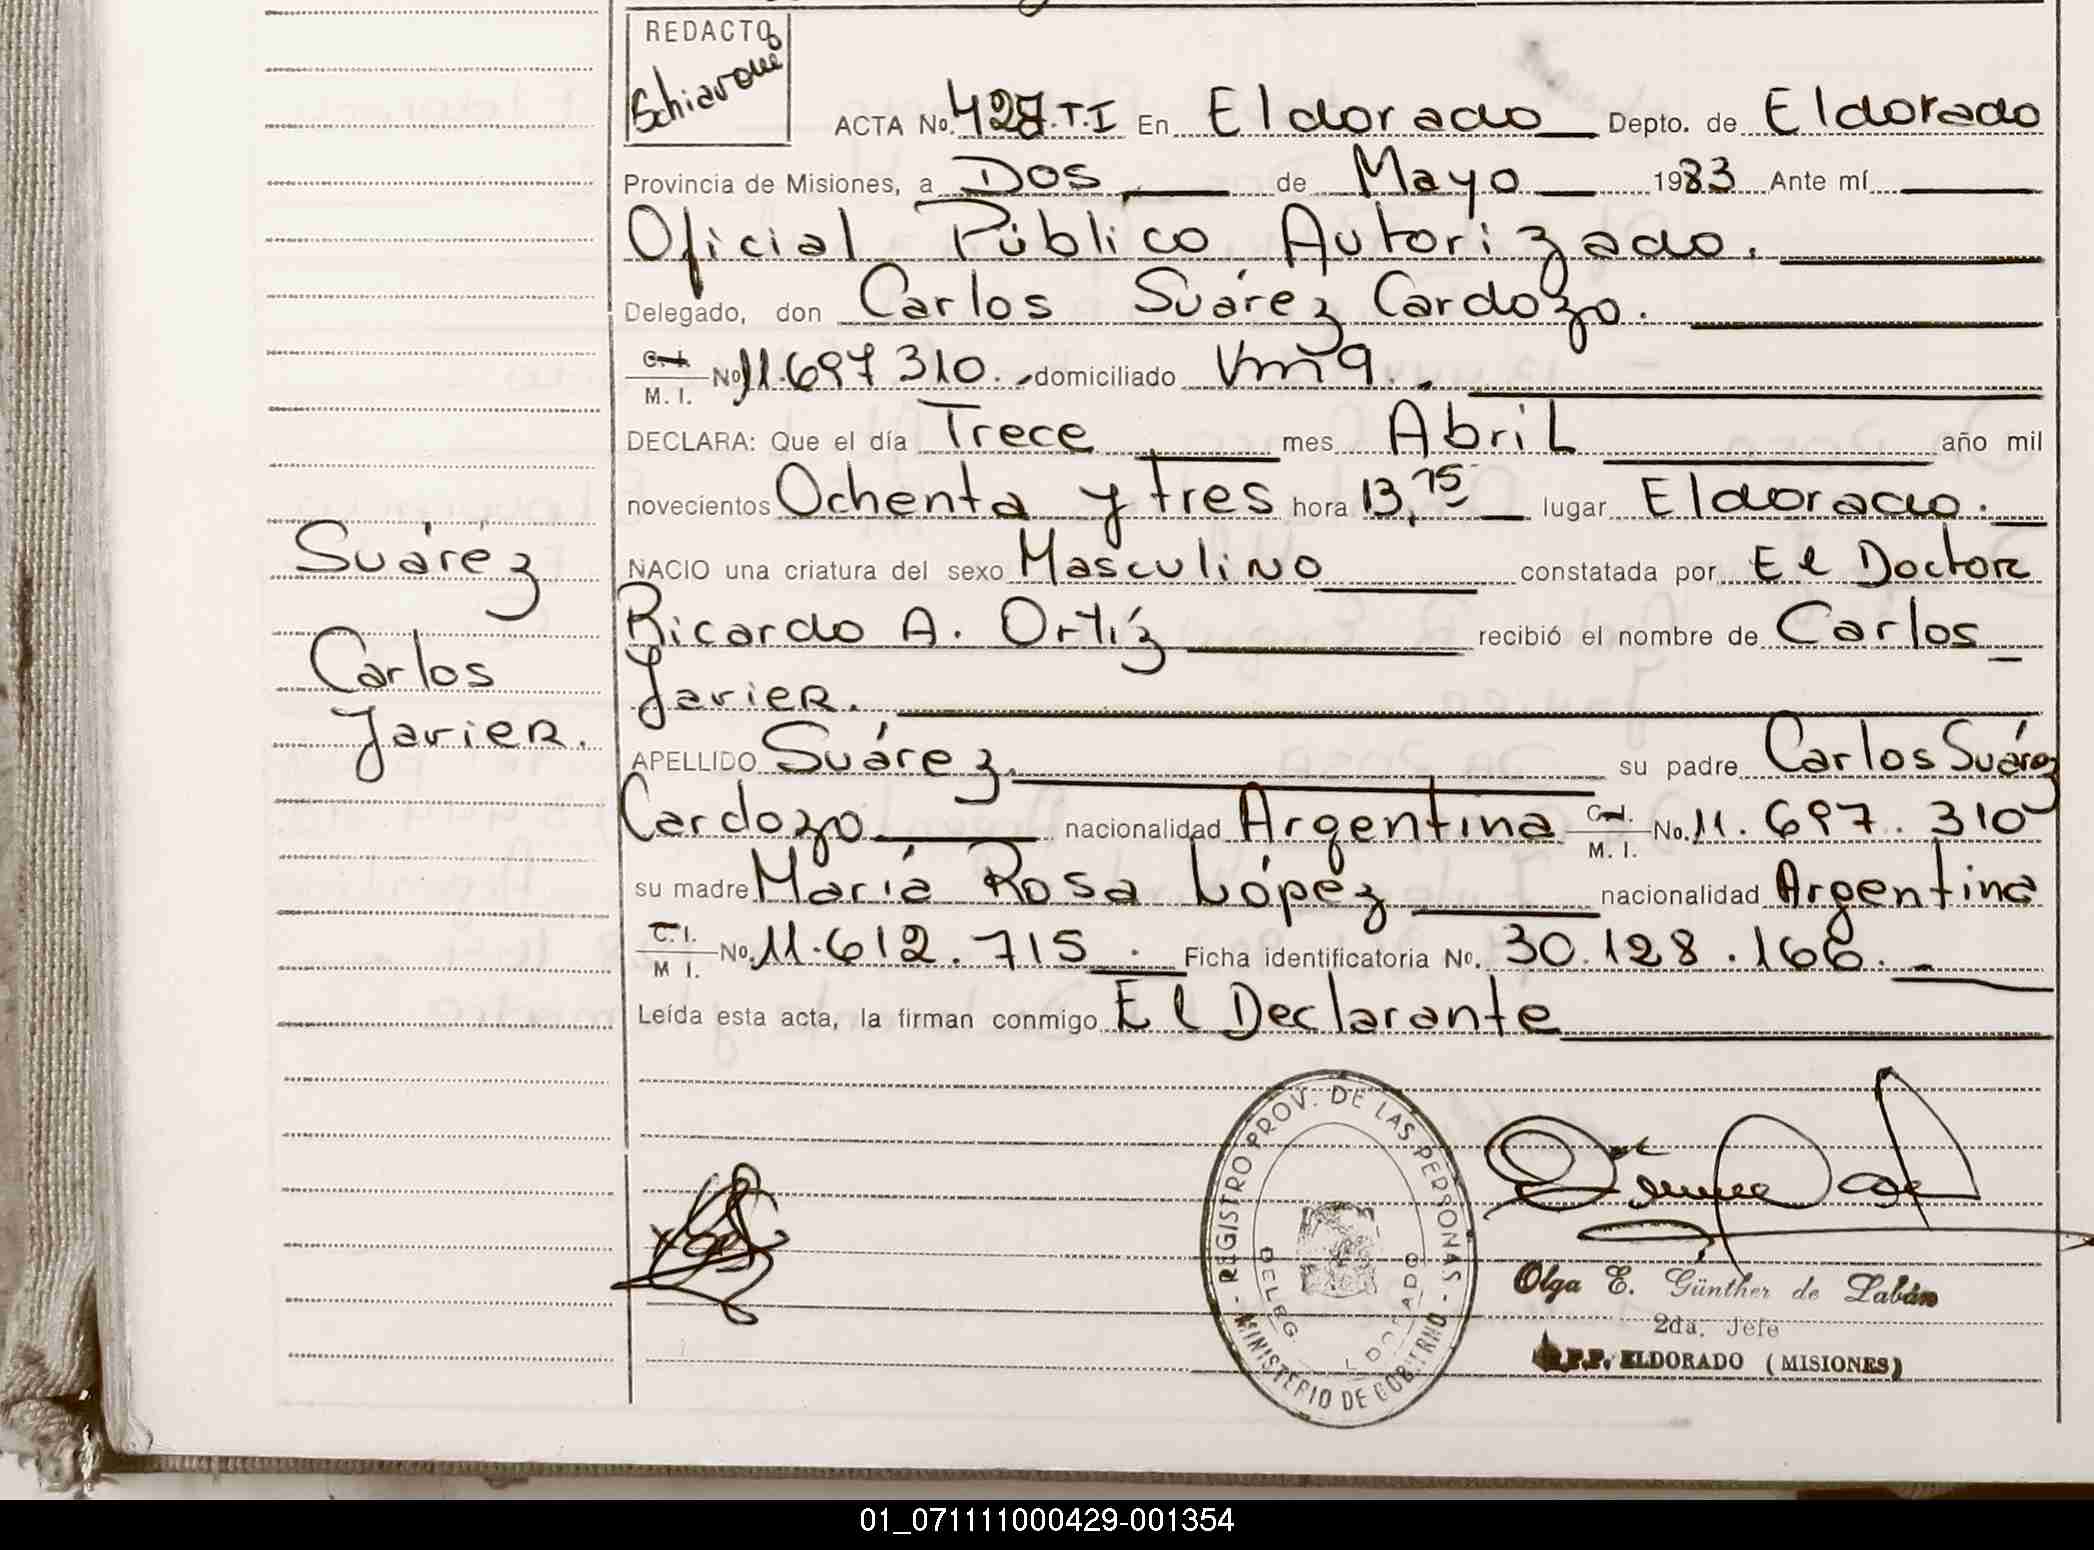 REDACTO
Schiavone
ACTA No. 427.T.I En Eldorado Depto. de Eldorado
Provincia de Misiones, a Dos de Mayo 1983 Ante mí
Oficial Público Autorizado.
Delegado, don Carlos Suárez Cardozo.
C. I. M. I. No 11.697310. domiciliado
DECLARA: Que el día Trece mes Abril año mil
novecientos Ochenta y tres hora 13,15 lugar Eldorado.
NACIO una criatura del sexo Masculino constatada por El Doctor
Ricardo A. Ortíz recibió el nombre de Carlos
Javier.
APELLIDO Suárez su padre Carlos Suárez
Cardozo nacionalidad Argentina C. I. M. I. No. 11.697.310
su madre María Rosa López nacionalidad Argentina
C. I. M I. No. 11.612.715. Ficha identificatoria No. 30.128.166.
Leída esta acta, la firman conmigo El Declarante
Suárez
Carlos
Javier.
REGISTRO PROV. DE LAS PERSONAS - MINISTERIO DE GOBIERNO -
Olga E. Günther de Labán
2da. Jefe
ELDORADO (MISIONES)
01_071111000429-001354